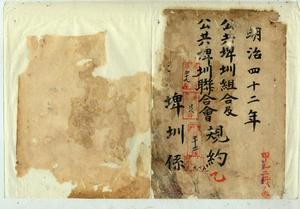 明治四十二年
公共埤圳組合及
公共埤圳聯合會規約
乙
埤圳係